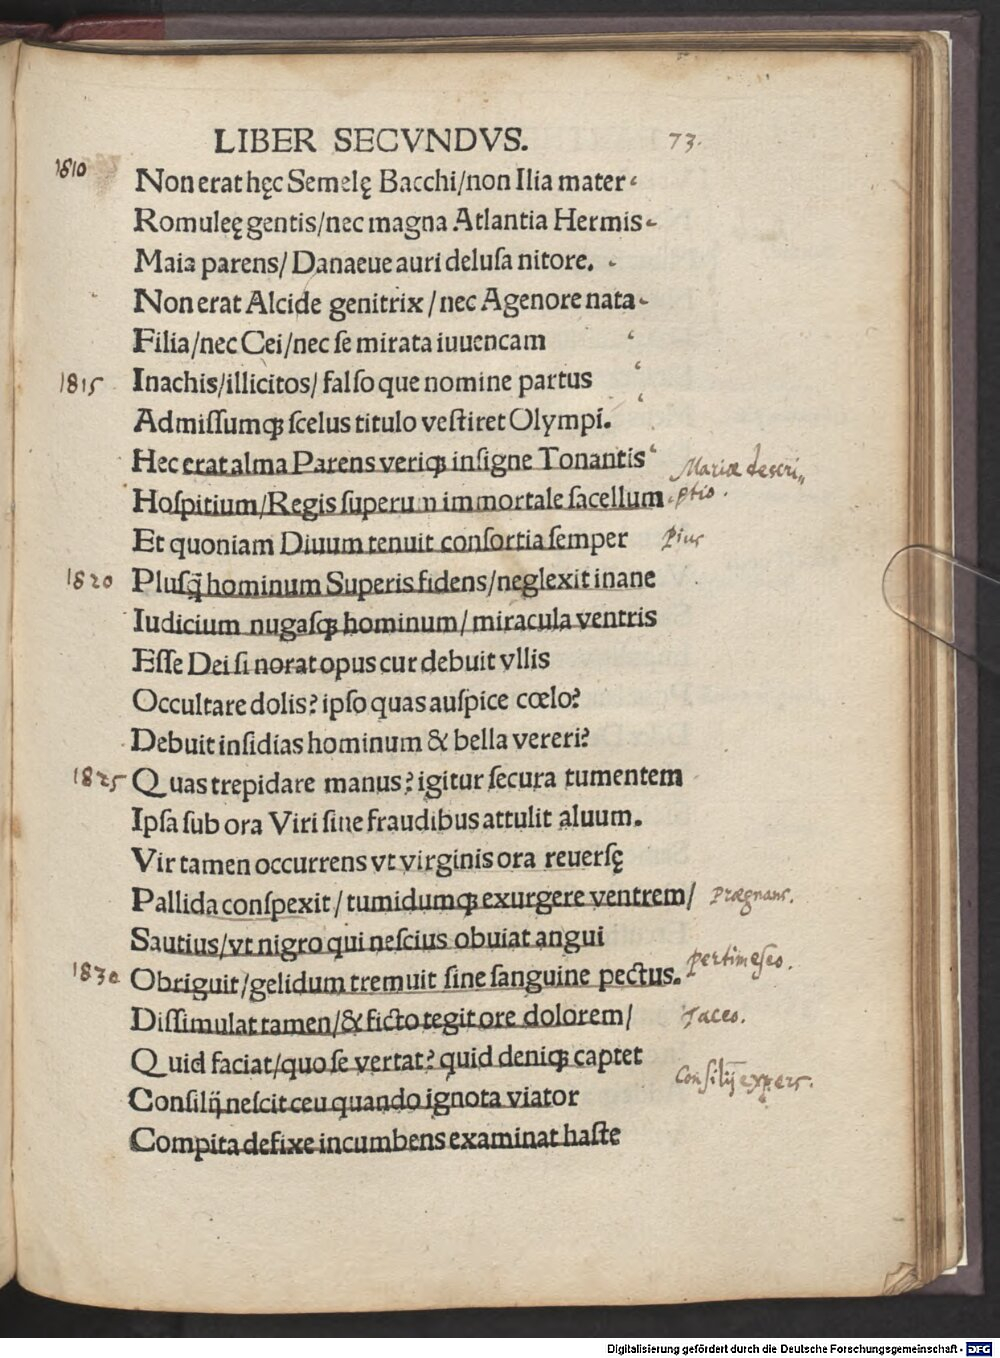 LIBER SECVNDVS. 73.
1810
Non erat hęc Semelę Bacchi/non Ilia mater
Romuleę gentis/nec magna Atlantia Hermis
Maia parens/ Danaeue auri delusa nitore.
Non erat Alcide genitrix / nec Agenore nata
Filia/nec Cei/nec se mirata iuuencam
1815 Inachis/illicitos/ falso que nomine partus
Admissumqꝫ scelus titulo vestiret Olympi.
Hec erat alma Parens veriqꝫ insigne Tonantis
Mariæ descri„
Hospitium/Regis superum immortale sacellum
ptio.
Et quoniam Diuum tenuit consortia semper pius
1820 Plusq̃ hominum Superis fidens/neglexit inane
Iudicium nugasqꝫ hominum/ miracula ventris
Esse Dei si norat opus cur debuit vllis
Occultare dolis? ipso quas auspice cœlo?
Debuit insidias hominum & bella vereri?
1825 Quas trepidare manus? igitur secura tumentem
Ipsa sub ora Viri sine fraudibus attulit aluum.
Vir tamen occurrens vt virginis ora reuersę
Pallida conspexit/ tumidumqꝫ exurgere ventrem/ prægnans.
Sautius/vt nigro qui nescius obuiat angui
pertimesco.
1830 Obriguit/gelidum tremuit sine sanguine pectus.
Dissimulat tamen/& ficto tegit ore dolorem/ Taceo.
Quid faciat/quo se vertat? quid deniqꝫ captet
Consilij expers.
Consilij nescit ceu quando ignota viator
Compita defixe incumbens examinat haste
Digitalisierung gefördert durch die Deutsche Forschungsgemeinschaft - DFG